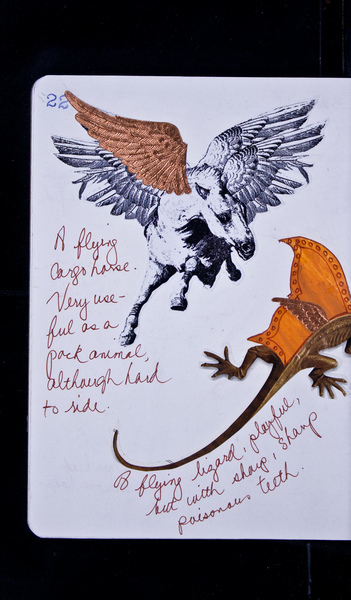 22
A flying
cargo horse.
Very use-
ful as a
pack animal,
although hard
to ride.
A flying lizard, playful,
but with sharp, sharp
poisonous teeth.